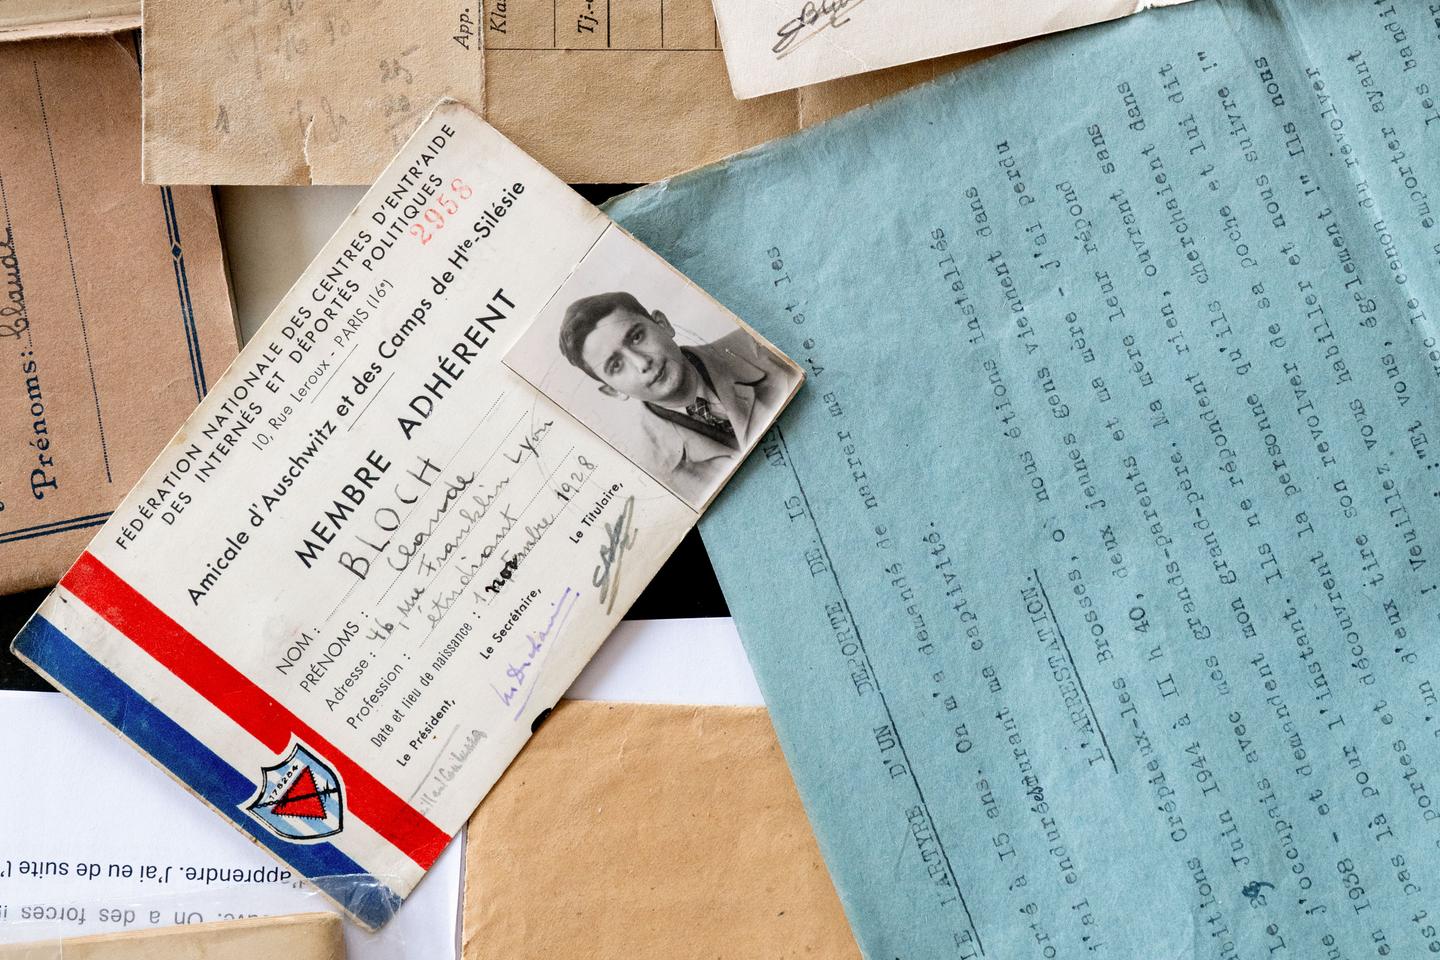 FÉDÉRATION NATIONALE DES CENTRES D'ENTR'AIDE
DES INTERNÉS ET DÉPORTÉS POLITIQUES
10, Rue Leroux - PARIS (16e)
2958
Amicale d'Auschwitz et des Camps de Hte-Silésie
MEMBRE ADHÉRENT
NOM : BLOCH
PRÉNOMS : Claude
Adresse : 46, rue Franklin Lyon
Profession : etudiant
Date et lieu de naissance : 1 novembre 1928
Le Président,
Le Secrétaire,
Le Titulaire,
176204
Prénoms: Claude
App.
Kla
Tj.
25
LE MARTYRE D'UN DEPORTE DE 15 ANS
orté à 15 ans. On m'a demandé de narrer ma vie et les
j'ai endurées durant ma captivité.
L'ARRESTATION.
bitions Crépieux-les Brosses, où nous étions installés
Le 29 Juin 1944 à II h 40, deux jeunes gens viennent dans
ue j'occupais avec mes grands-parents et ma mère - j'ai perdu
en 1938 - et demandent mon grand-père. Ma mère leur répond
est pas là pour l'instant. Ils ne répondent rien, ouvrant sans
portes et découvrent la personne qu'ils cherchaient dans
d'eux tire son revolver de sa poche et lui dit
! Veuillez vous habiller et nous suivre !"
"Et vous, également !" Ils nous
le canon du revolver
emporter ayant
les bandit
apprendre. J'ai eu de suite l'
On a des forces